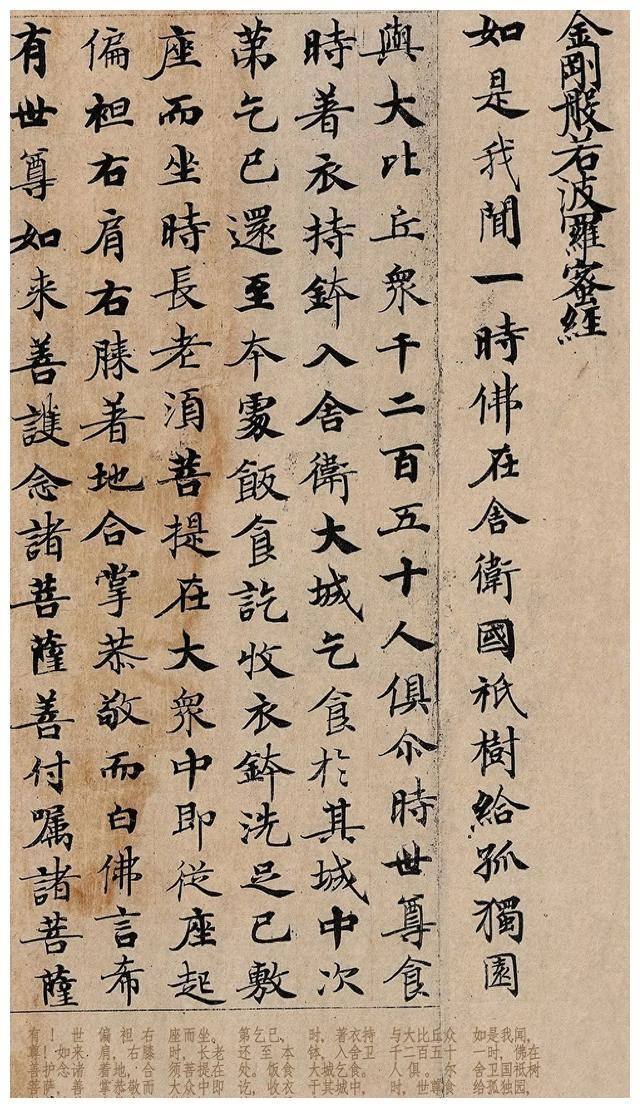 金剛般若波羅蜜經
如是我聞一時佛在舍衛國祇樹給孤獨園
與大比丘眾千二百五十人俱尒時世尊食
時著衣持鉢入舍衛大城乞食於其城中次
第乞已還至本處飯食訖收衣鉢洗足已敷
座而坐時長老須菩提在大眾中即從座起
偏袒右肩右膝著地合掌恭敬而白佛言希
有世尊如来善護念諸菩薩善付嘱諸菩薩
如是我闻，
一时，佛在
舍卫国祇树
给孤独园，
与大比丘众
千二百五十
人俱。尔
时，世尊食
时，著衣持
钵，入舍卫
大城乞食。
于其城中，
第乞已，
还至本
处。饭食
讫，收衣
座而坐。
时，长老
须菩提在
大众中即
偏袒右
肩，右膝
着地，合
掌恭敬而
有！世
尊！如来
善护念诸
菩萨，善